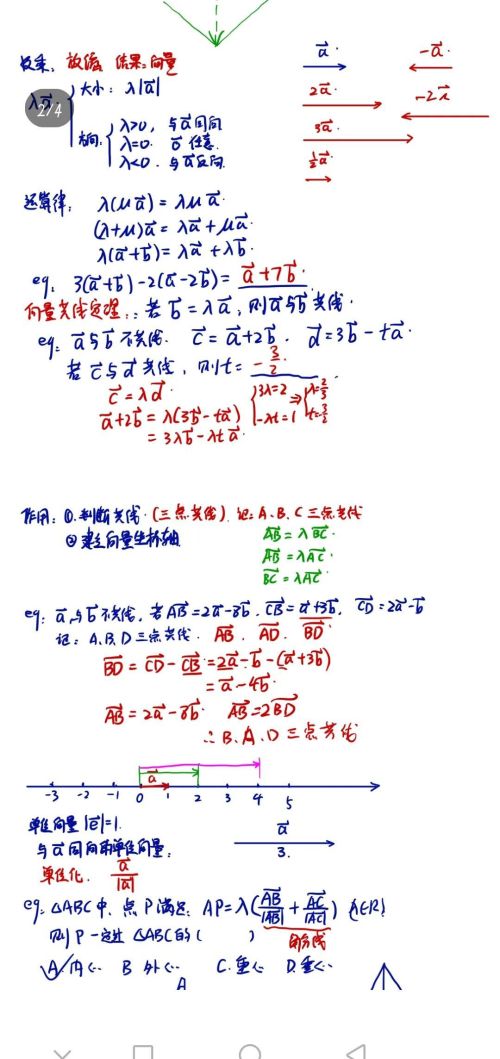 数乘: 放缩 结果:向量
λa⃗
大小: λ|a⃗|
方向
λ>0, 与a⃗同向
λ=0. 0⃗ 任意.
λ<0. 与a⃗反向.
2/4
a⃗
-a⃗
2a⃗
-2a⃗
3a⃗
½a⃗
运算律: λ(μa⃗) = λμa⃗.
(λ+μ)a⃗ = λa⃗ + μa⃗.
λ(a⃗+b⃗) = λa⃗ + λb⃗.
eg: 3(a⃗+b⃗)-2(a⃗-2b⃗) = a⃗+7b⃗.
向量共线定理: 若 b⃗ = λa⃗, 则a⃗与b⃗共线.
eg: a⃗与b⃗不共线. c⃗ = a⃗+2b⃗. d⃗ = 3b⃗ - ta⃗.
若 c⃗与d⃗共线, 则t = -3/2
c⃗ = λd⃗.
a⃗+2b⃗ = λ(3b⃗-ta⃗)
= 3λb⃗ - λta⃗.
{3λ=2 -λt=1 ⇒ {λ=2/3 t=-3/2
作用: ①.判断共线.(三点共线). 证: A、B、C 三点共线
②建立向量坐标轴
AB⃗ = λBC⃗.
AB⃗ = λAC⃗.
BC⃗ = λAC⃗
eg: a⃗与b⃗不共线, 若AB⃗=2a⃗-8b⃗. CB⃗=a⃗+3b⃗, CD⃗=2a⃗-b⃗
证: A、B、D三点共线. AB⃗. AD⃗. BD⃗
BD⃗ = CD⃗ - CB⃗ = 2a⃗-b⃗-(a⃗+3b⃗)
= a⃗-4b⃗.
AB⃗ = 2a⃗-8b⃗ AB⃗=2BD⃗
∴ B、A、D 三点共线
a⃗
-3 -2 -1 0 1 2 3 4 5
单位向量 |e⃗|=1.
与a⃗同向的单位向量:
a⃗
3.
单位化. a⃗/|a⃗|
eg: △ABC中, 点P满足: AP=λ(AB⃗/|AB⃗| + AC⃗/|AC⃗|) (λ∈R)
则P一定过△ABC的( )
角分线
A.内心. B 外心. C.重心 D.垂心.
A